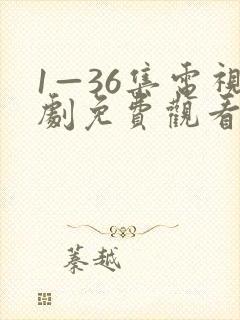 1—36集電視
劇免費觀看
蓁越